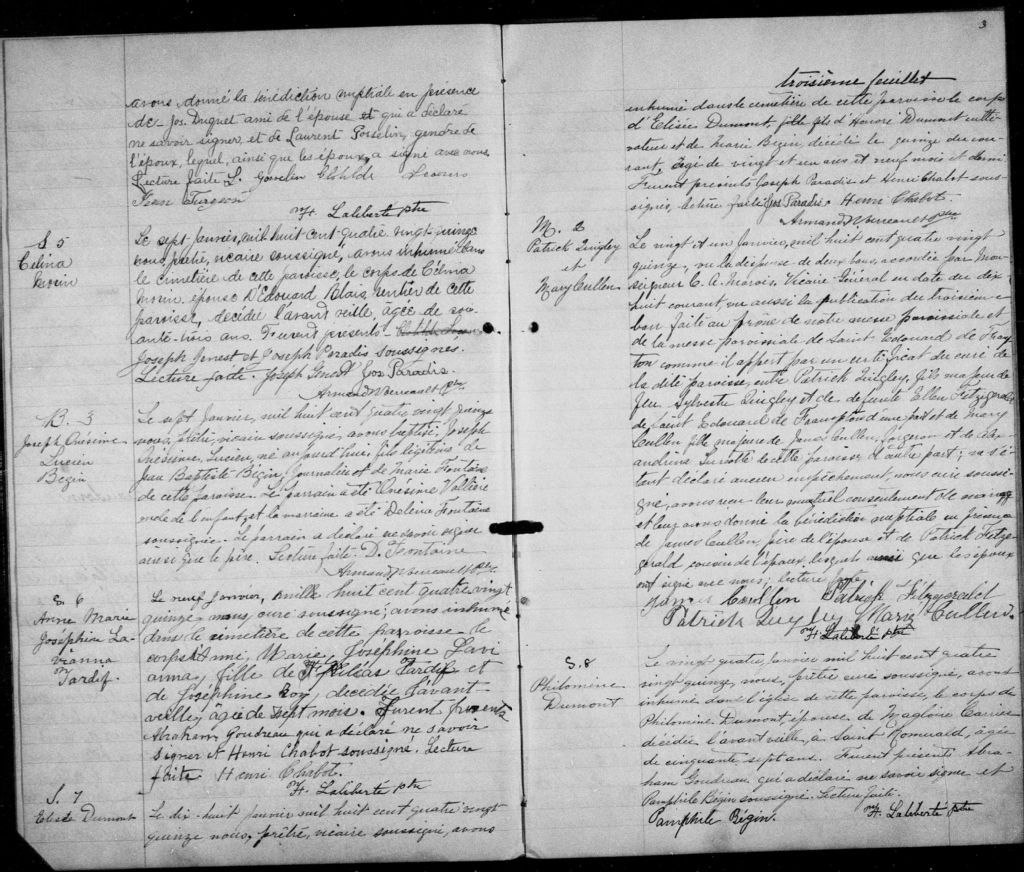 avons donné la bénédiction nuptiale en présence
de Jos. Duquet ami de l'épouse et qui a déclaré
ne savoir signer, et de Laurent Gosselin, gendre de
l'époux, lequel, ainsi que les époux, a signé avec nous.
Lecture faite L. Gosselin
Jean Turgeon
H. Laliberté ptre
S. 5
Célina
Morin
Le sept Janvier, mil huit cent quatre vingt quinze
nous, prêtre, vicaire soussigné, avons inhumé dans
le cimetière de cette paroisse, le corps de Célina
Morin, épouse D'Edouard Blais, rentier de cette
paroisse, décédée l'avant veille, âgée de soix-
ante-trois ans. Furent présents
Joseph Genest et Joseph Paradis soussignés.
Lecture faite. Joseph Genest Jos Paradis.
Armand Verreault Ptre.
B. 3
Joseph Onésime
Lucien
Bégin
Le sept Janvier, mil huit cent quatre vingt quinze
nous, prêtre, vicaire soussigné, avons baptisé, Joseph
Onésime, Lucien, né aujourd'hui, fils légitime de
Jean Baptiste Bégin, Journalier et de Marie Fontaine
de cette paroisse. Le parrain a été Onésime Vallière
oncle de l'enfant, et la marraine a été Delena Fontaine
soussignée. Le parrain a déclaré ne savoir signer
ainsi que le père. Lecture faite. D. Fontaine
Armand Verreault Ptre.
S. 6
Anne Marie
Joséphine La-
vianna
Tardif.
Le neuf Janvier, mille huit cent quatre vingt
quinze nous, curé soussigné, avons inhumé
dans le cimetière de cette paroisse le
corps Marie, Joséphine Lavi
anna, fille de Tardif et
de Joséphine Roy, décédée l'avant-
veille, âgée de sept mois. Furent présents
Abraham Goudreau qui a déclaré ne savoir
signer et Henri Chabot soussigné. Lecture
faite Henri Chabot.
H. Laliberté ptre
S. 7
Elisée Dumont
Le dix-huit Janvier mil huit cent quatre vingt
quinze nous, prêtre, vicaire soussigné, avons
3
troisième feuillet
inhumé dans le cimetière de cette paroisse le corps
d'Elisée Dumont, fils d'Honoré Dumont culti-
vateur et de Marie Bégin, décédé le quinze du cou-
rant, âgé de vingt et un ans et neuf mois et demi.
Furent présents Joseph Paradis et Henri Chabot sous-
signés, lecture faite Jos Paradis. Henri Chabot.
Armand Verreault Ptre
M. 2
Patrick Quigley
et
Mary Cullen
Le vingt et un Janvier, mil huit cent quatre vingt
quinze, vu la dispense de deux bans, accordée par Mon-
seigneur C. A. Marois, Vicaire Général en date du dix
huit courant, vu aussi la publication du troisième
ban faite au prône de notre messe paroissiale et
de la messe paroissiale de Saint Edouard de Framp-
ton comme il appert par un certificat du curé de
la dite paroisse, entre Patrick Quigley, fils majeur de
feu Sylvestre Quigley et de défunte Ellen Fitzgerald
de Saint Edouard de Frampton d'une part et de Mary
Cullen fille majeure de James Cullen, forgeron et de
de cette paroisse, d'autre part; ne s'é-
tant déclaré aucun empêchement, nous curé soussi-
gné, avons reçu leur mutuel consentement de mariage
et leur avons donné la bénédiction nuptiale en présence
de James Cullen, père de l'épouse et de Patrick Fitz-
gerald cousin de l'époux, lesquels ainsi que les époux
ont signé avec nous; lecture faite.
James Cullen Patrick Fitzgerald
Patrick Quigley Mary Cullen.
H. Laliberté ptre
S. 8
Philomène
Dumont
Le vingt quatre, Janvier mil huit cent quatre
vingt quinze, nous, prêtre curé soussigné, avons
inhumé dans l'église de cette paroisse, le corps de
Philomène Dumont, épouse de Magloire Carrier
décédée l'avant veille, à Saint Romuald, âgée
de cinquante sept ans. Furent présents Abra-
ham Goudreau qui a déclaré ne savoir signer et
Pamphile Bégin soussigné. Lecture faite.
Pamphile Bégin.
H. Laliberté ptre